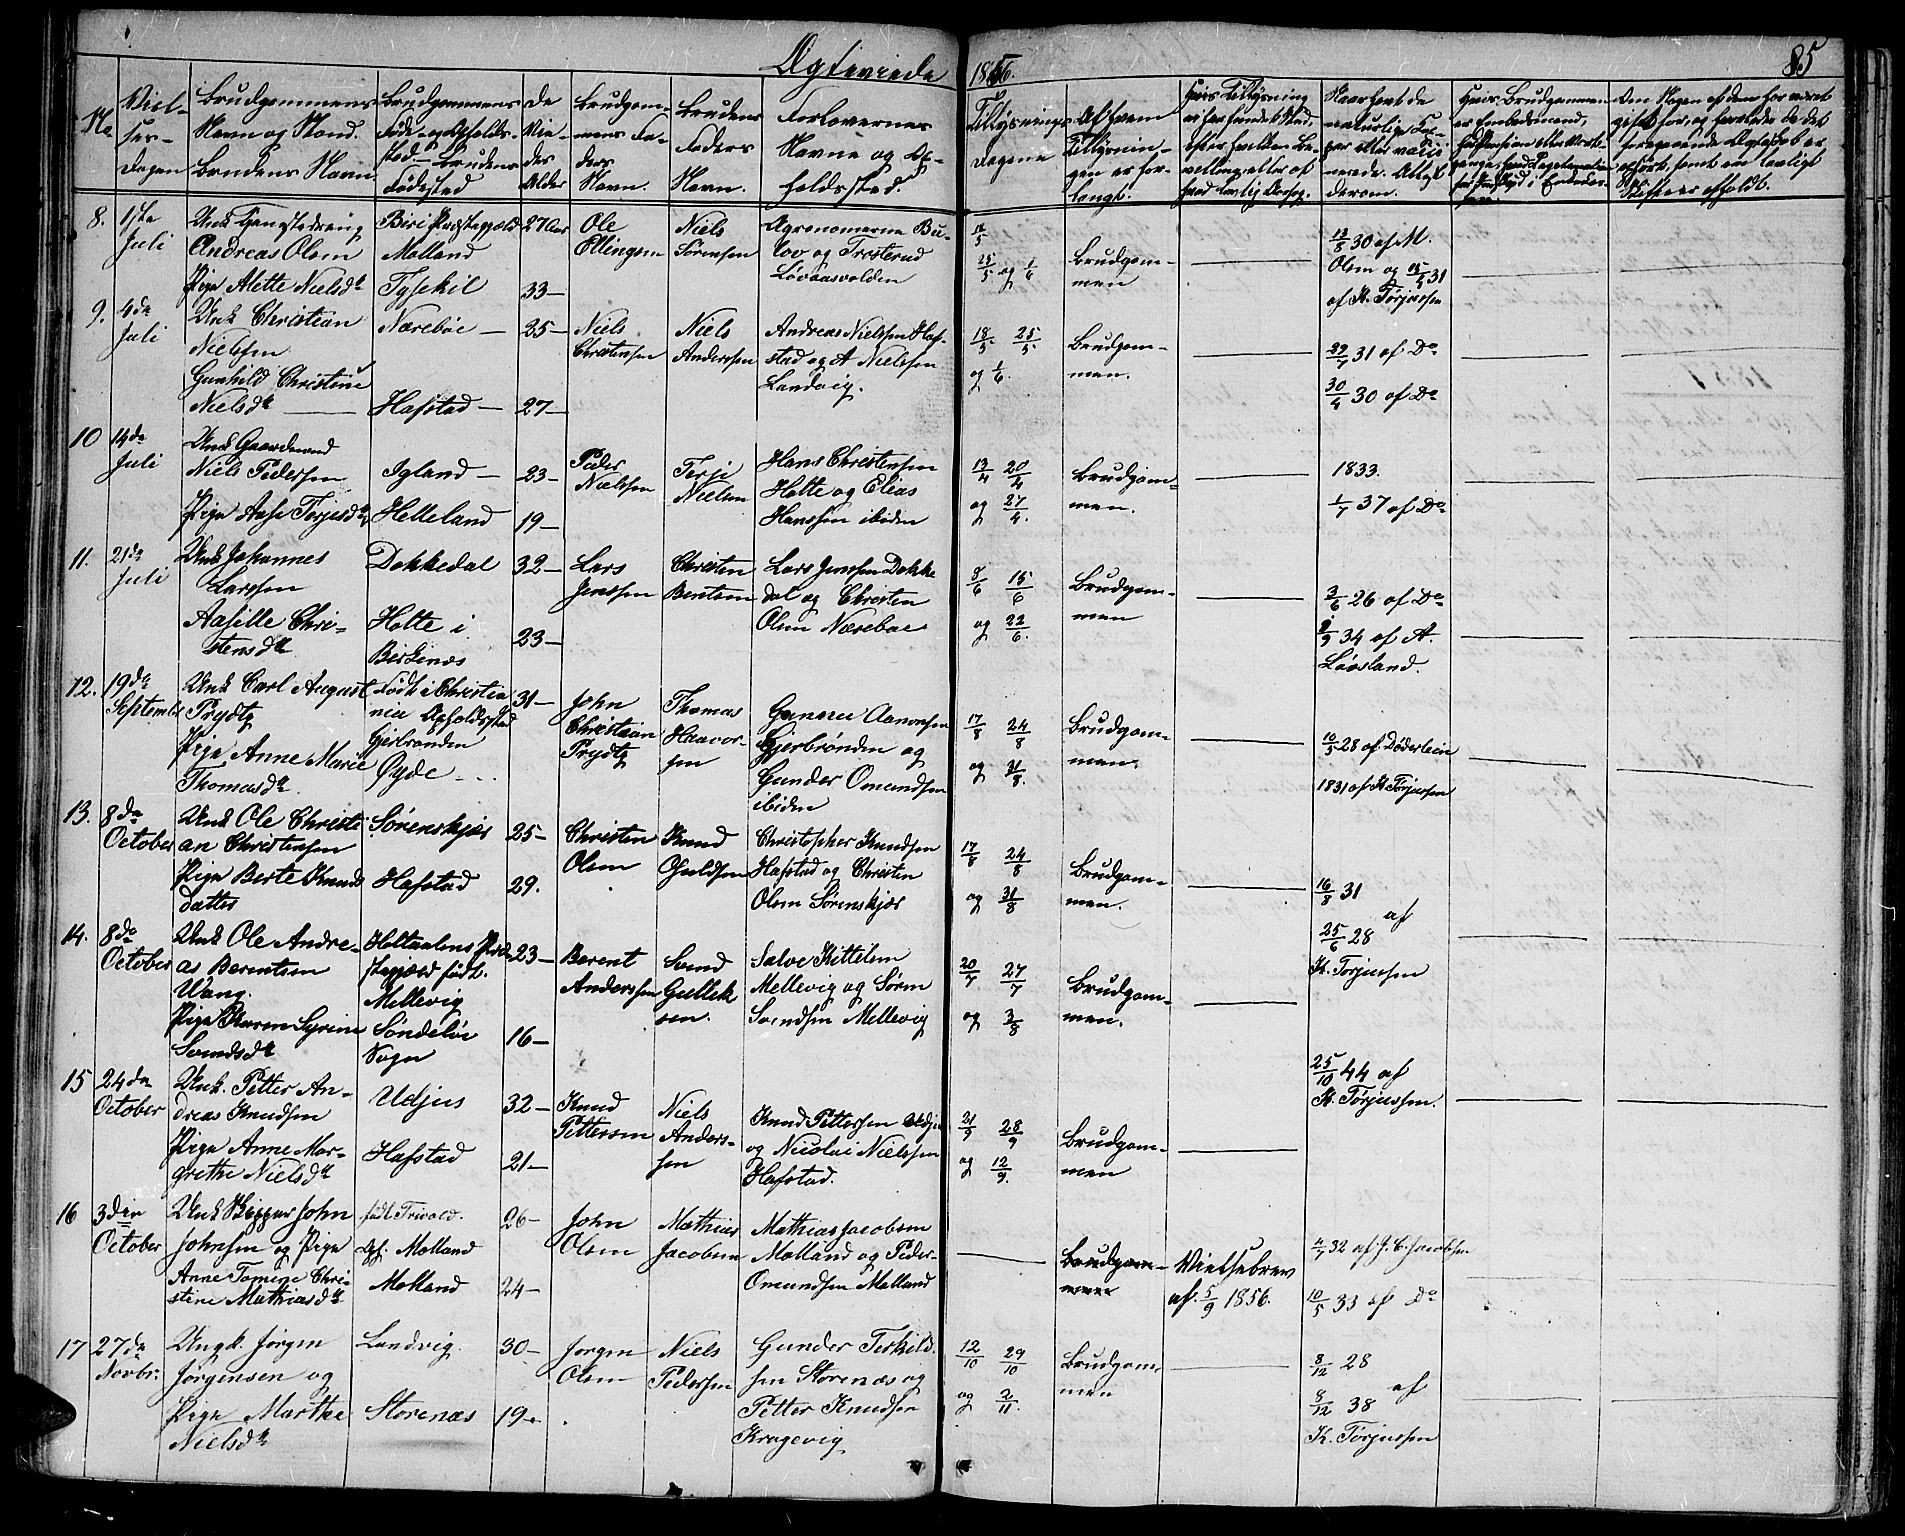 Ægteviede 1856. 85
No
Viel-
ses-
Dagen
Brudgommens
Navn og Stand.
Brudens Navn
Brudgommens
Føde- og Opholds-
sted — Brudens
Fødested
De
Vie-
des
Alder
Brudgom-
mens Fa-
ders
Navn.
Brudens
Faders
Navn.
Forlovernes
Navne og Op-
holdssted.
Tillysnings
Dagene
Af hvem
Tillysnin-
gen er for-
langt.
8. 1ste
Juli
Unk Tjenestedreng
Andreas Olsen
Pige Alette Nielsdr
Biri Præstegjæld
Molland
Tysekil
27 Aar
33—
Ole
Ellingsen
Niels
Sørensen
Agronomerne Bu-
lov og Trosterud
Løvaasvolden
12/5
25/5 og 1/6
Brudgom-
men
13/8 30 af M.
Olsen og 31
af K. Tørjussen
9. 4de
Juli
Unk Christian
Nielsen
Gunhild Christine
Nielsdr
Nærebøe —
Hafstad —
25—
27—
Niels
Christensen
Niels
Anderssen
Andreas Nielssen Haf-
stad og A Nielssen
Landvig.
18/5 25/5
og 1/6.
Brudgom-
men.
29/7 31 af Do
30/4 30 af Do
10 14de
Juli
Unk Gaardmand
Niels Pedersen
Pige Aase Terjesdr
Igland —
Helleland
23—
19—
Peder
Nielssen
Terje
Nielsen
Hans Christensen
Holte og Elias
Hanssen ibiden
13/4 20/4
og 27/4.
Brudgom-
men.
1833.
1/7 37 af Do
11. 21de
Juli
Unk Johannes
Larssen
Aasille Chri-
stensdr
Dokkedal
Holte i
Birkenæs
32—
23—
Lars
Jenssen
Christen
Bentsen
Lars Jenssen Dokke
dal og Christen
Olsen Nærebøe
8/6 15/6
og 22/6.
Brudgom-
men
3/6 26 af Do
9 34 af A.
Løvsland.
12. 19de
September
Unk Carl August
Prydtz
Pige Anne Marie
Thomasdr
Født i Christia
nia Opholdssted
Gjerbrønden
Øyde
31—
John
Christian
Prydtz
Thomas
Haavor-
sen
Gunner Aanonsen
Gjerbrønden og
Gunder Omundsen
ibiden
17/8 24/8
og 31/8.
Brudgom-
men.
10/5 28 af Døderlein
1831 af K Tørjussen
13. 8de
October
Unk Ole Christi
an Christensen
Pige Berte Knuds
datter
Sørenskjær
Hafstad
25—
29.
Christen
Olsen
Knud
Christopher Knudsen
Hafstad og Christen
Olsen Sørenskjær
17/8 24/8
og 31/8
Brudgom-
men.
16/8 31
af
25/6 28
K. Torjussen
14. 8de
October
Unk Ole Andre-
as Berentsen
Wang.
Pige Karen Syrine
Svendsdr
Holtaalens Præ
stegjæld født.
Mellevig
Søndeløv
Sogn
23—
16—
Berent
Anderssen
Svend
Gullik
sen.
Salve Kittelsen
Mellevig og Søren
Svendsen Mellevig
20/7 27/7
og 3/8
Brudgom-
men.
25/10 44 af
K. Torjussen.
15 24de
October
Unk. Petter An-
dreas Knudsen
Pige Anne Mar-
grethe Nielsdr
Udjus
Hafstad
32—
21—
Knud
Pettersen
Niels
Anders-
sen
Knud Pettersen Udju
og Nicolai Nielssen
Hafstad.
21/9 28/9
og 12/9.
Brudgom-
men
16 3die
October
Unk Skipper John
Johnsen og Pige
Anne Tomine Chri-
stine Mathiasdr
født Trivold.
Oph. Molland
Molland
26—
24—
John
Olsen
Mathias
Jacobsen
Mathias Jacobsen
Molland og Peder
Omundsen Molland
Brudgom-
men
Vielsebrev
af. 5/9 1856.
4/7 32 af J. C. Jacobsen
10/5 33 af Do
17 27de
Novbr.
Ungk. Jørgen
Jørgensen og
Pige Marthe
Nielsdr
Landvig.
Storenæs
30—
19.
Jørgen
Olsen
Niels
Pedersen
Gunder Terkild-
sen Storenæs og
Petter Knudsen
Kragevig
12/10 29/10
og 2/11.
Brudgom-
men
8/12 28
af
8/12 38
K. Torjussen